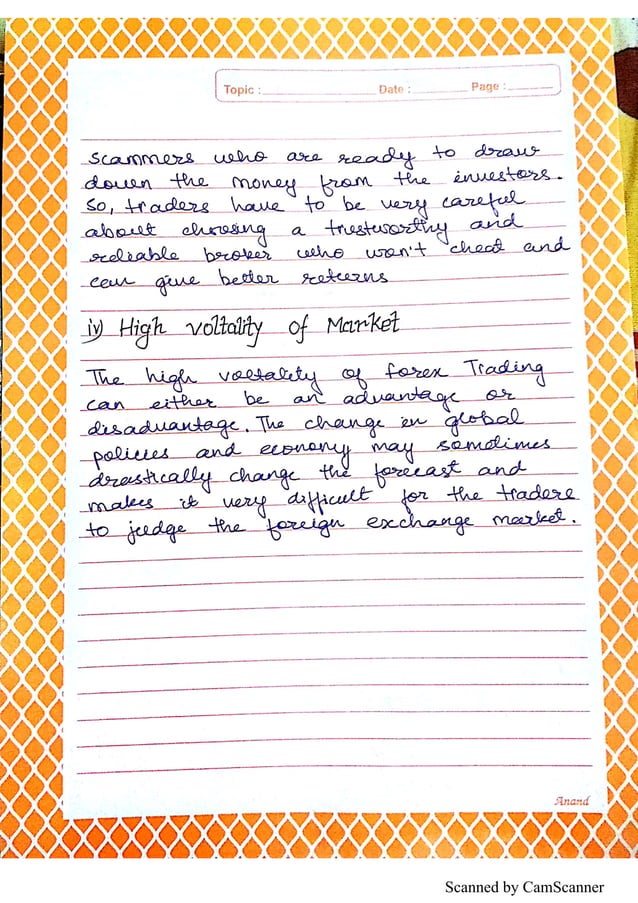 Topic : Date : Page :
scammers who are ready to draw
down the money from the investors.
So, traders have to be very careful
about choosing a trustworthy and
reliable broker who won't cheat and
can give better returns
iv) High voltality of Market
The high voltality of forex Trading
can either be an advantage or
disadvantage. The change in global
policies and economy may somdimes
drastically change the forecast and
makes it very difficult for the traders
to judge the foreign exchange market.
Anand
Scanned by CamScanner